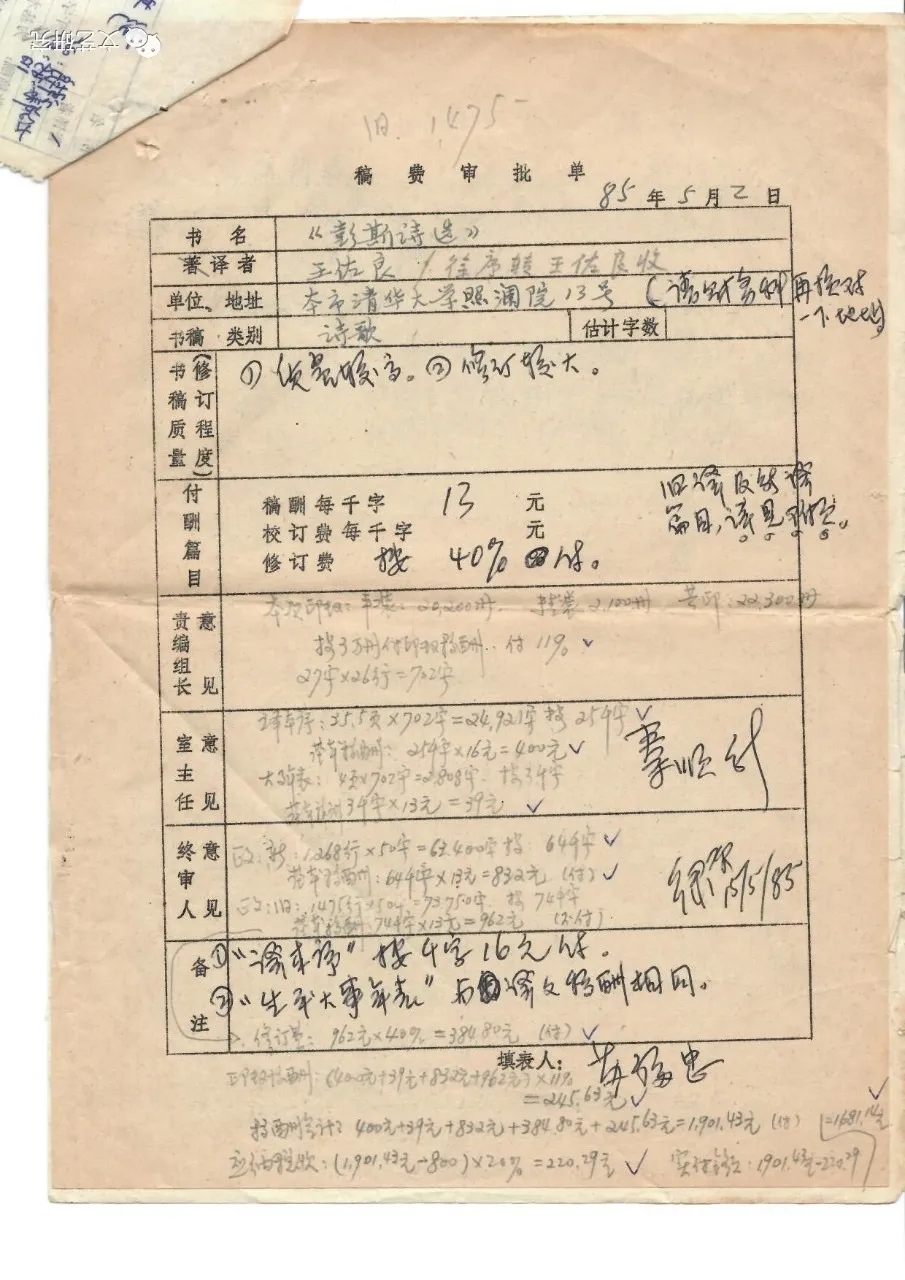 文艺研究
旧. 1475
稿费审批单
85年5月2日
书名 《彭斯诗选》
著译者 王佐良 / 徐序转王佐良收
单位、地址 本市清华大学照澜院13号 (请财务科再核对
一下地址)
书稿类别 诗歌 估计字数
书稿质量(修订程度) ① 质量较高。② 修订较大。
付酬篇目
稿酬每千字 13 元
校订费每千字 元
修订费 按 40% 付。
旧译及新译
篇目,请见附表。
责编组长意见
本次印数:平装:20,200册 精装2,100册 共印:22,300册
按3万册付印数稿酬. 付11%
27字×26行=702字
室主任意见
译本序:35.5页×702字=24,921字 按25千字
基本稿酬:25千字×16元=400元
大事年表:4页×702字=2,808字 按3千字
基本稿酬3千字×13元=39元
秦顺新
终审人意见
正文:新:1,268行×50字=63,400字 按 64千字
基本稿酬:64千字×13元=832元 (付)
正文:旧:1475行×50字=73,750字 按 74千字
基本稿酬:74千字×13元=962元 (不付)
15/5/85
备注
① “译本序”按千字16元付。
② “生平大事年表”与译文稿酬相同。
修订费: 962元×40%=384.80元 (付)
填表人:
印数稿酬:(400元+39元+832元+962元)×11%
=245.63元
稿酬合计:400元+39元+832元+384.80元+245.63元=1,901.43元 (付)
应纳税款:(1,901.43元-800)×20%=220.29元 实付金额:1901.43元-220.29
=1681.14元